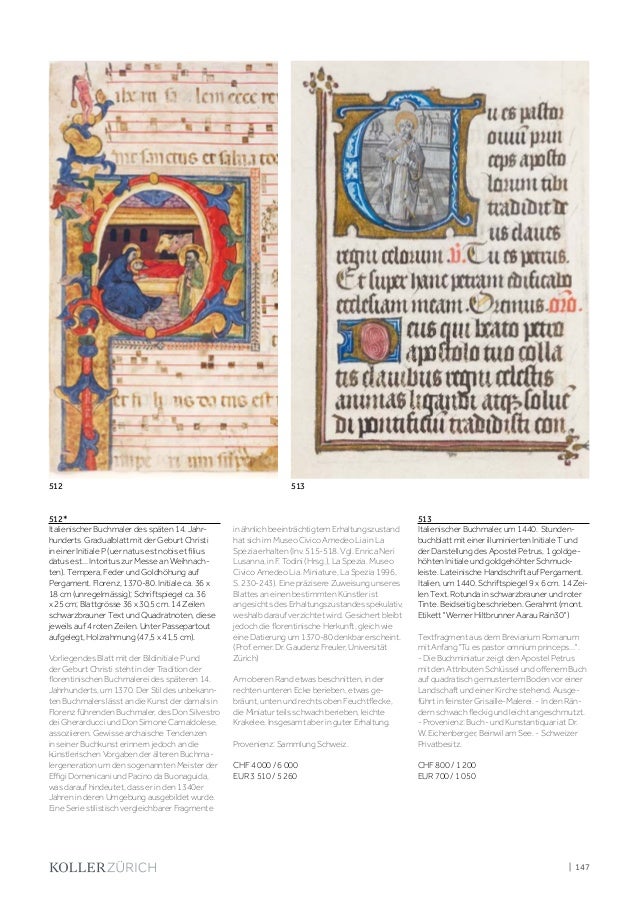 ibera
lem ecce re
me sanctus et
Tu es pastor
ouiū prin
ceps aposto
lorum tibi
tradidit de
us claues
regni celorum .V. Tu es petrus.
Et super hanc petram edificabo
ecclesiam meam. Oremus. oro.
Deus qui beato petro
apostolo tuo colla
tis clauibus regni celestis
animas ligandi atqz solue
di pontificiū tradidisti con
512
513
512*
Italienischer Buchmaler des späten 14. Jahr-
hunderts. Gradualblatt mit der Geburt Christi
in einer Initiale P (uer natus est nobis et filius
datus est... Intoritus zur Messe an Weihnach-
ten). Tempera, Feder und Goldhöhung auf
Pergament. Florenz, 1370-80. Initiale ca. 36 x
18 cm (unregelmässig); Schriftspiegel ca. 36
x 25 cm; Blattgrösse 36 x 30,5 cm. 14 Zeilen
schwarzbrauner Text und Quadratnoten, diese
jeweils auf 4 roten Zeilen. Unter Passepartout
aufgelegt, Holzrahmung (47,5 x 41,5 cm).
Vorliegendes Blatt mit der Bildinitiale P und
der Geburt Christi steht in der Tradition der
florentinischen Buchmalerei des späteren 14.
Jahrhunderts, um 1370. Der Stil des unbekann-
ten Buchmalers lässt an die Kunst der damals in
Florenz führenden Buchmaler, des Don Silvestro
dei Gherarducci und Don Simone Camaldolese,
assoziieren. Gewisse archaische Tendenzen
in seiner Buchkunst erinnern jedoch an die
künstlerischen Vorgaben der älteren Buchma-
lergeneration um den sogenannten Meister der
Effigi Domenicani und Pacino da Buonaguida,
was darauf hindeutet, dass er in den 1340er
Jahren in deren Umgebung ausgebildet wurde.
Eine Serie stilistisch vergleichbarer Fragmente
in ähnlich beeinträchtigtem Erhaltungszustand
hat sich im Museo Civico Amedeo Lia in La
Spezia erhalten (Inv. 515-518. Vgl. Enrica Neri
Lusanna, in F. Todini (Hrsg.), La Spezia. Museo
Civico Amedeo Lia. Miniature, La Spezia 1996,
S. 230-243). Eine präzisere Zuweisung unseres
Blattes an einen bestimmten Künstler ist
angesichts des Erhaltungszustandes spekulativ,
weshalb darauf verzichtet wird. Gesichert bleibt
jedoch die florentinische Herkunft, gleich wie
eine Datierung um 1370-80 denkbar erscheint.
(Prof. emer. Dr. Gaudenz Freuler, Universität
Zürich)
Am oberen Rand etwas beschnitten, in der
rechten unteren Ecke berieben, etwas ge-
bräunt, unten und rechts oben Feuchtflecke,
die Miniatur teils schwach berieben, leichte
Krakelee. Insgesamt aber in guter Erhaltung.
Provenienz: Sammlung Schweiz.
CHF 4 000 / 6 000
EUR 3 510 / 5 260
513
Italienischer Buchmaler, um 1440. Stunden-
buchblatt mit einer illuminierten Initiale T und
der Darstellung des Apostel Petrus, 1 goldge-
höhten Initiale und goldgehöhter Schmuck-
leiste. Lateinische Handschrift auf Pergament.
Italien, um 1440. Schriftspiegel 9 x 6 cm. 14 Zei-
len Text. Rotunda in schwarzbrauner und roter
Tinte. Beidseitig beschrieben. Gerahmt (mont.
Etikett "Werner Hiltbrunner Aarau Rain30")
Textfragment aus dem Breviarium Romanum
mit Anfang "Tu es pastor omnium princeps...".
- Die Buchminiatur zeigt den Apostel Petrus
mit den Attributen Schlüssel und offenem Buch
auf quadratisch gemustertem Boden vor einer
Landschaft und einer Kirche stehend. Ausge-
führt in feinster Grisaille-Malerei. - In den Rän-
dern schwach fleckig und leicht angeschmutzt.
- Provenienz: Buch- und Kunstantiquariat Dr.
W. Eichenberger, Beinwil am See. - Schweizer
Privatbesitz.
CHF 800 / 1 200
EUR 700 / 1 050
KOLLER ZÜRICH
| 147